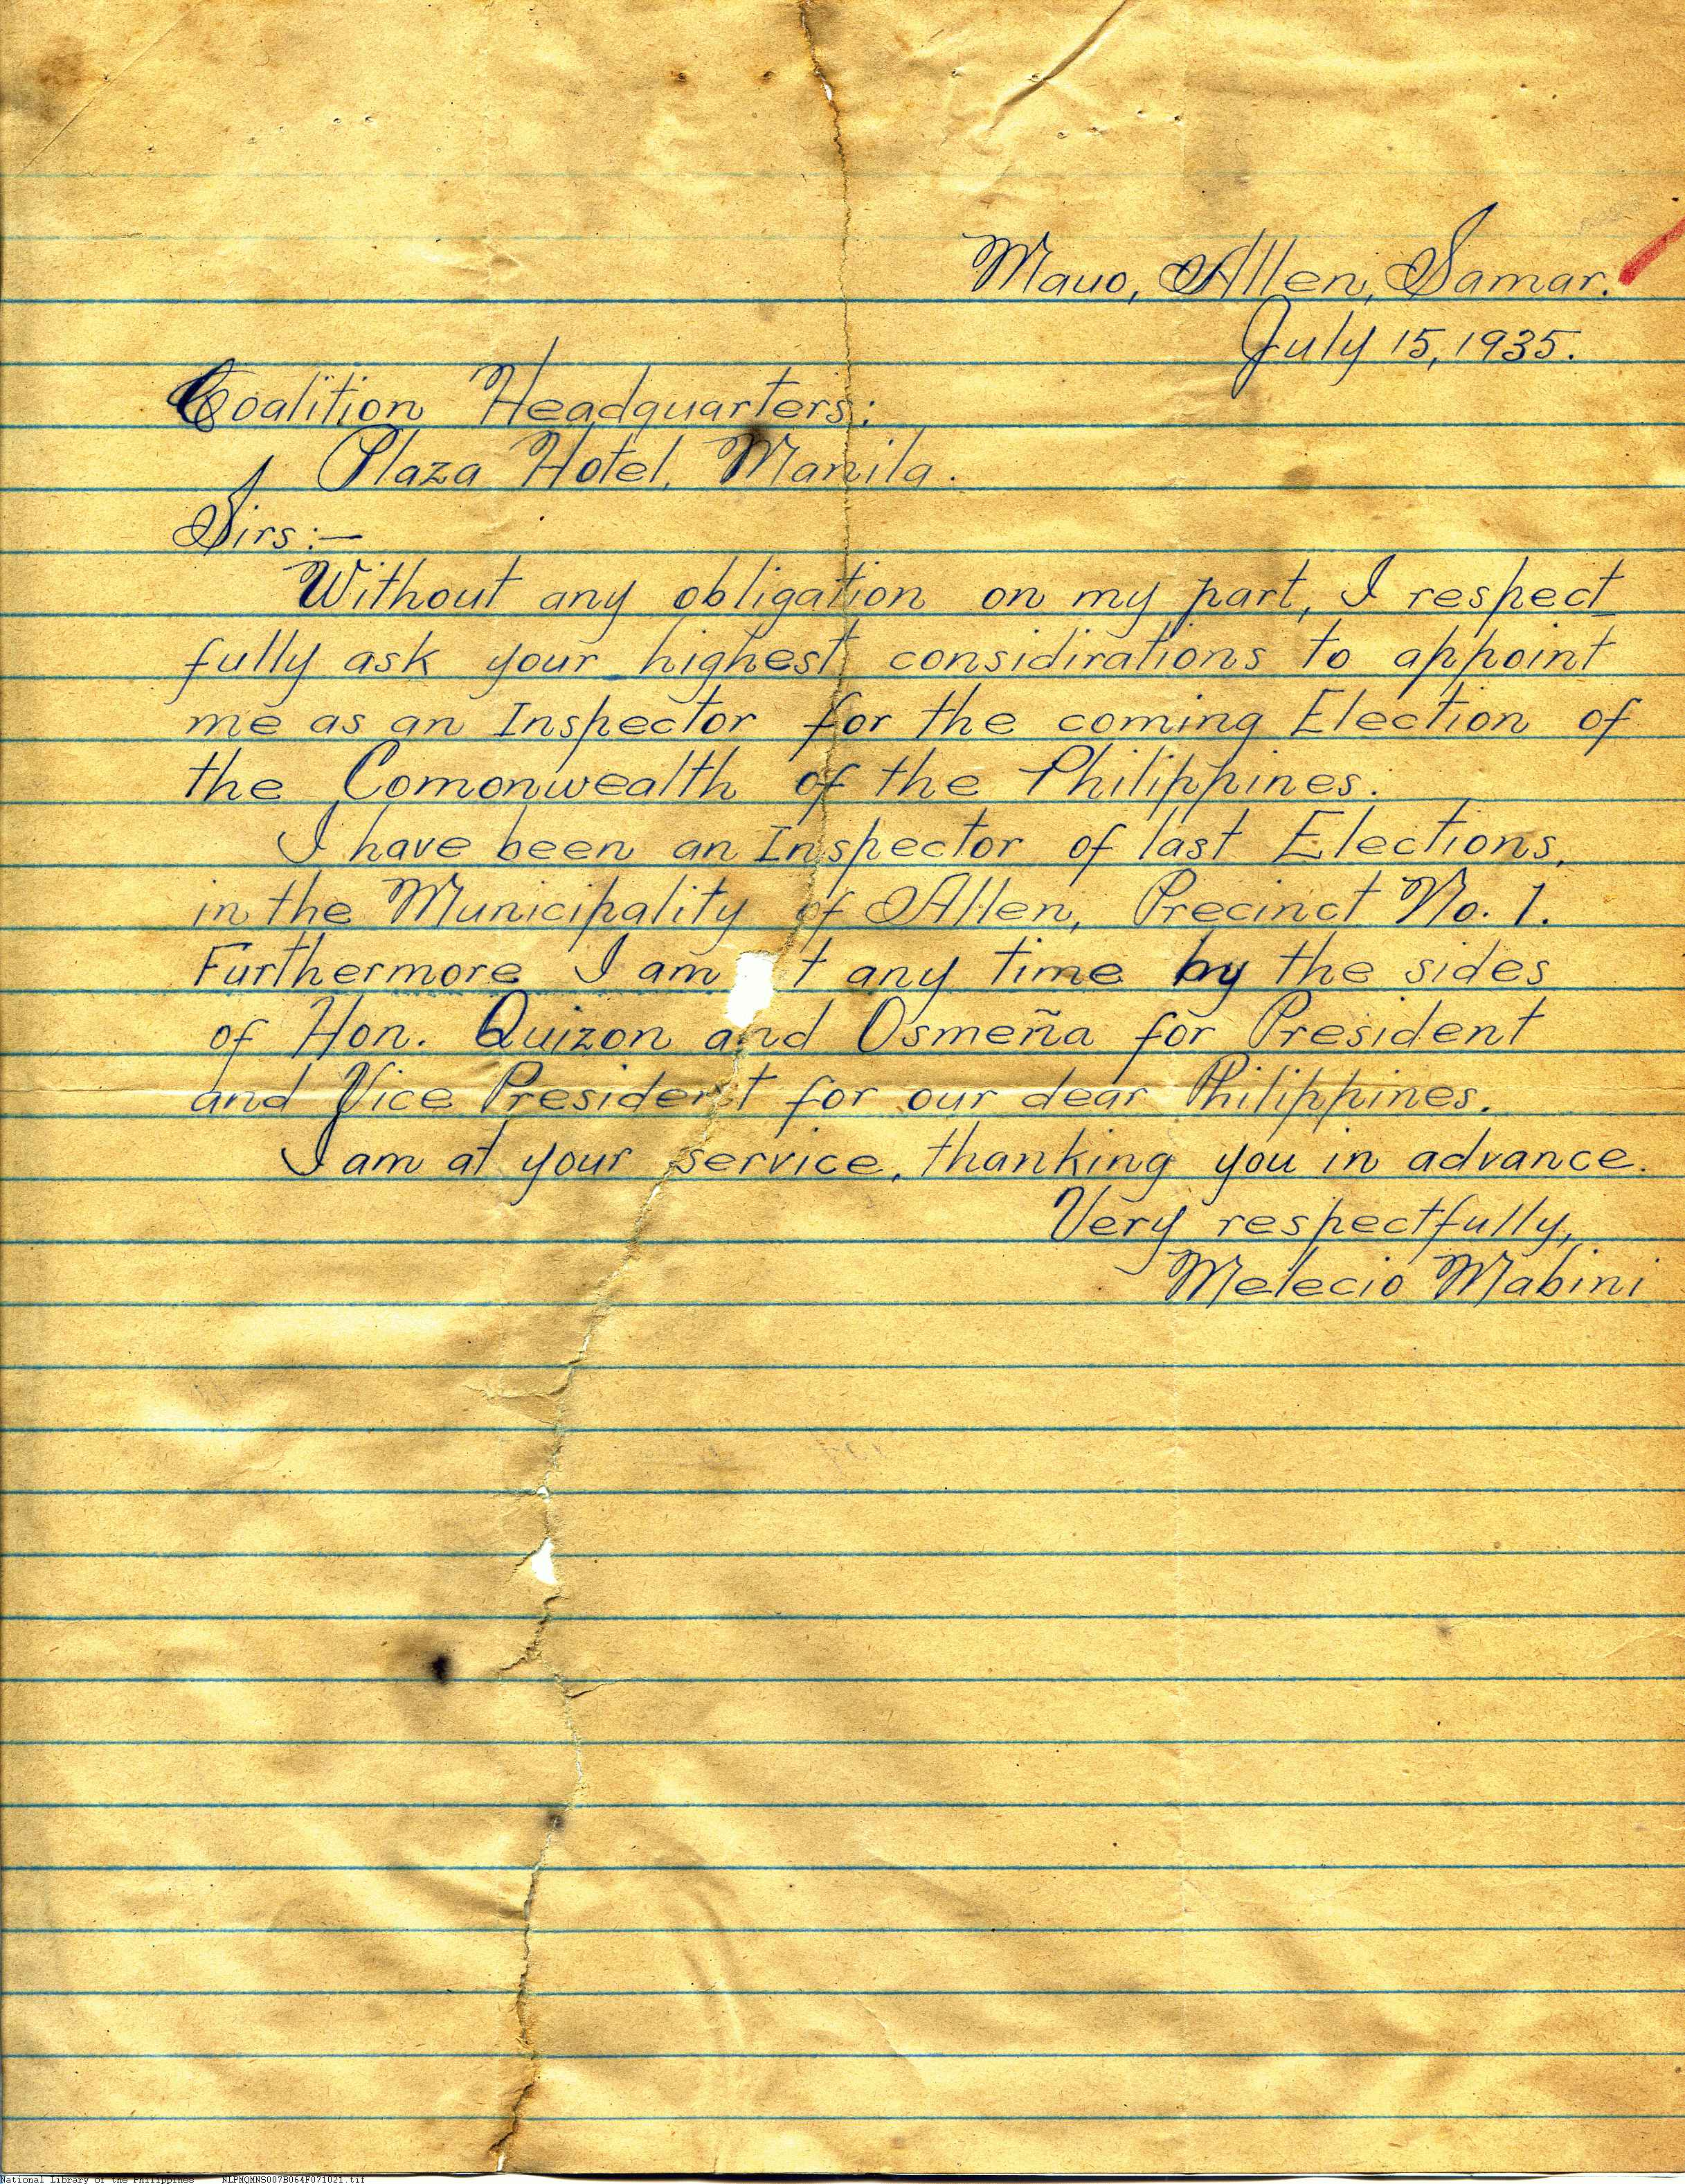 Mauo, Allen, Samar.
July 15, 1935.
Coalition Headquarters:
Plaza Hotel, Manila.
Sirs:—
Without any obligation on my part, I respect
fully ask your highest considirations to appoint
me as an Inspector for the coming Election of
the Comonwealth of the Philippines.
I have been an Inspector of last Elections,
in the Municipality of Allen, Precinct No. 1.
Furthermore I am t any time by the sides
of Hon. Quizon and Osmeña for President
and Vice President for our dear Philippines.
I am at your service, thanking you in advance.
Very respectfully,
Melecio Mabini
National Library of the Philippines NLPMQMNS007B064F071021.tif